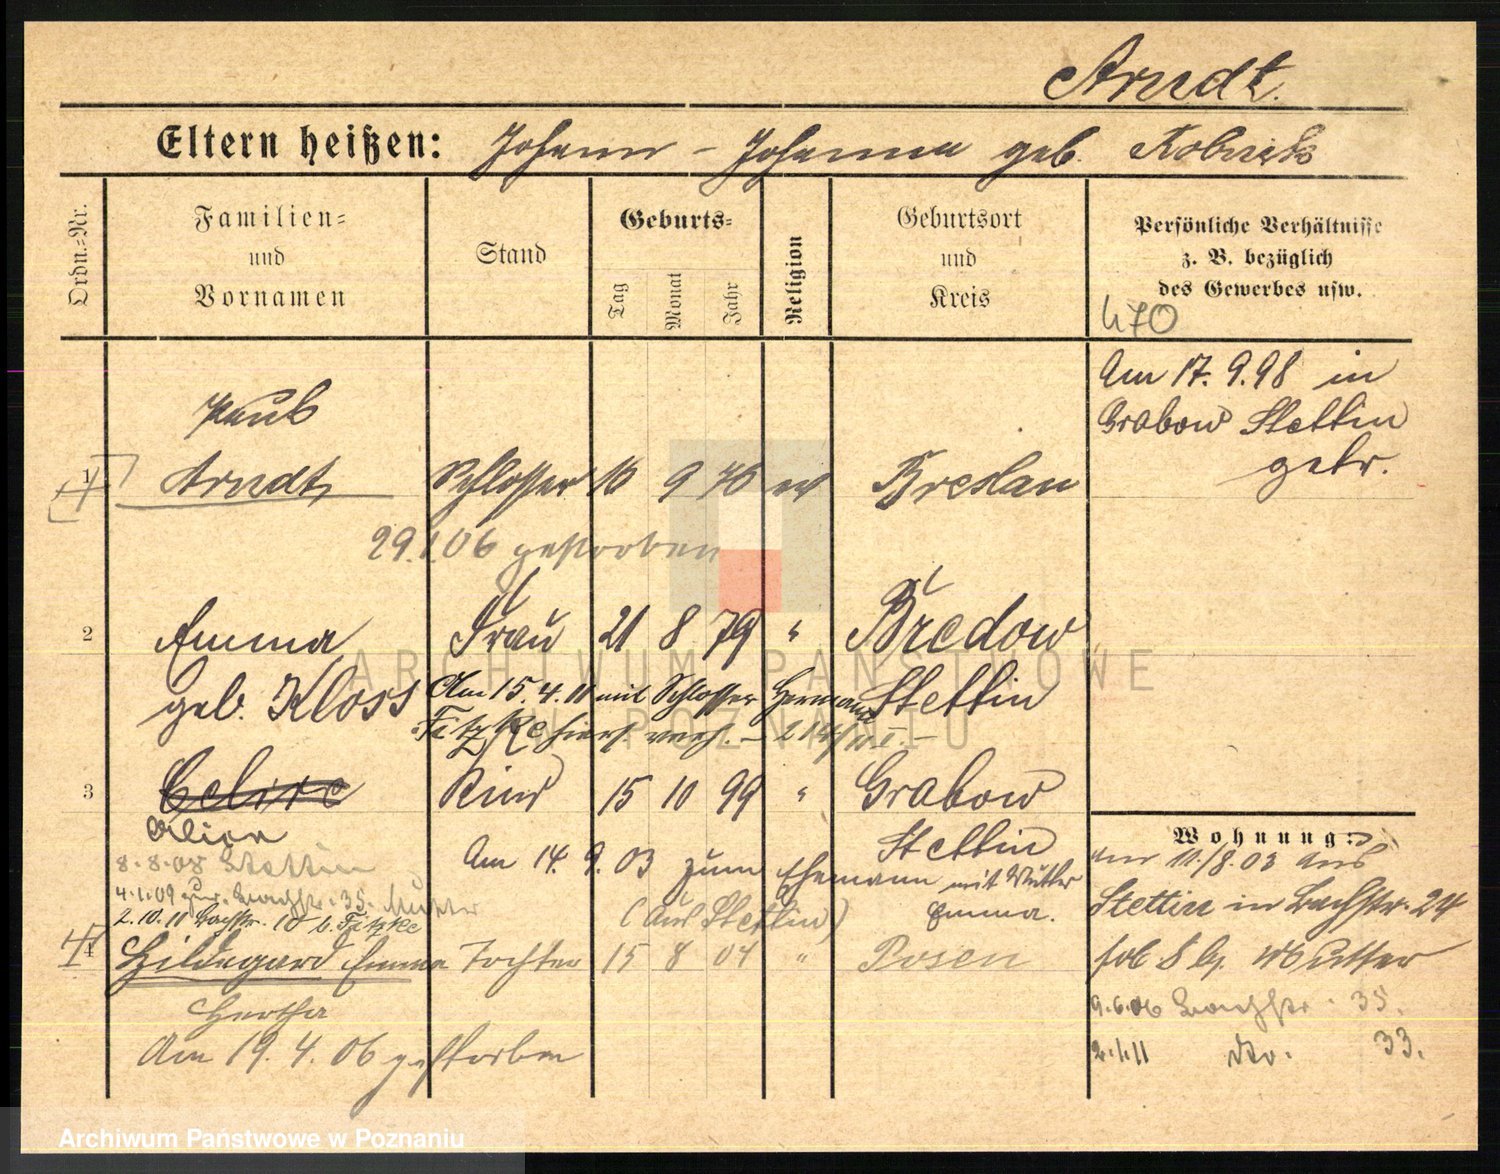 Arndt.
Eltern heißen: Johann - Johanna geb.
Ordn.=Nr.
Familien=
und
Vornamen
Stand
Geburts=
Tag
Monat
Jahr
Religion
Geburtsort
und
Kreis
Persönliche Verhältnisse
z. B. bezüglich
des Gewerbes usw.
470
Am 17. 9. 98 in
Grabow Stettin
getr.
Paul
1 Arndt, Schlosser 16 9 76 ev Breslau
29.1.06 gestorben
2 Emma Frau 21 8 79 " Bredow
geb. Kloss Am 15. 4. 11 mit Schlosser Hermann Stettin
Fitzke
3 Kind 15 10 99 " Grabow
Stettin
Wohnung:
8.8.08 Stettin
Am 14. 9. 03 zum Ehemann mit Mutter
Emma.
(aus Stettin)
4.1.09 zur. Bachstr. 35. Mutter
2.10.11 b. Fitzke
am 11./8.03 aus
Stettin in Bachstr. 24
Mutter
4 Hildegard Emma Tochter 15 8 04 " Posen
Hertha
Am 19. 4. 06 gestorben
9.6.06 Bachstr. 35.
2.1.11 do. 33.
ARCHIWUM PAŃSTWOWE
W POZNANIU
Archiwum Państwowe w Poznaniu